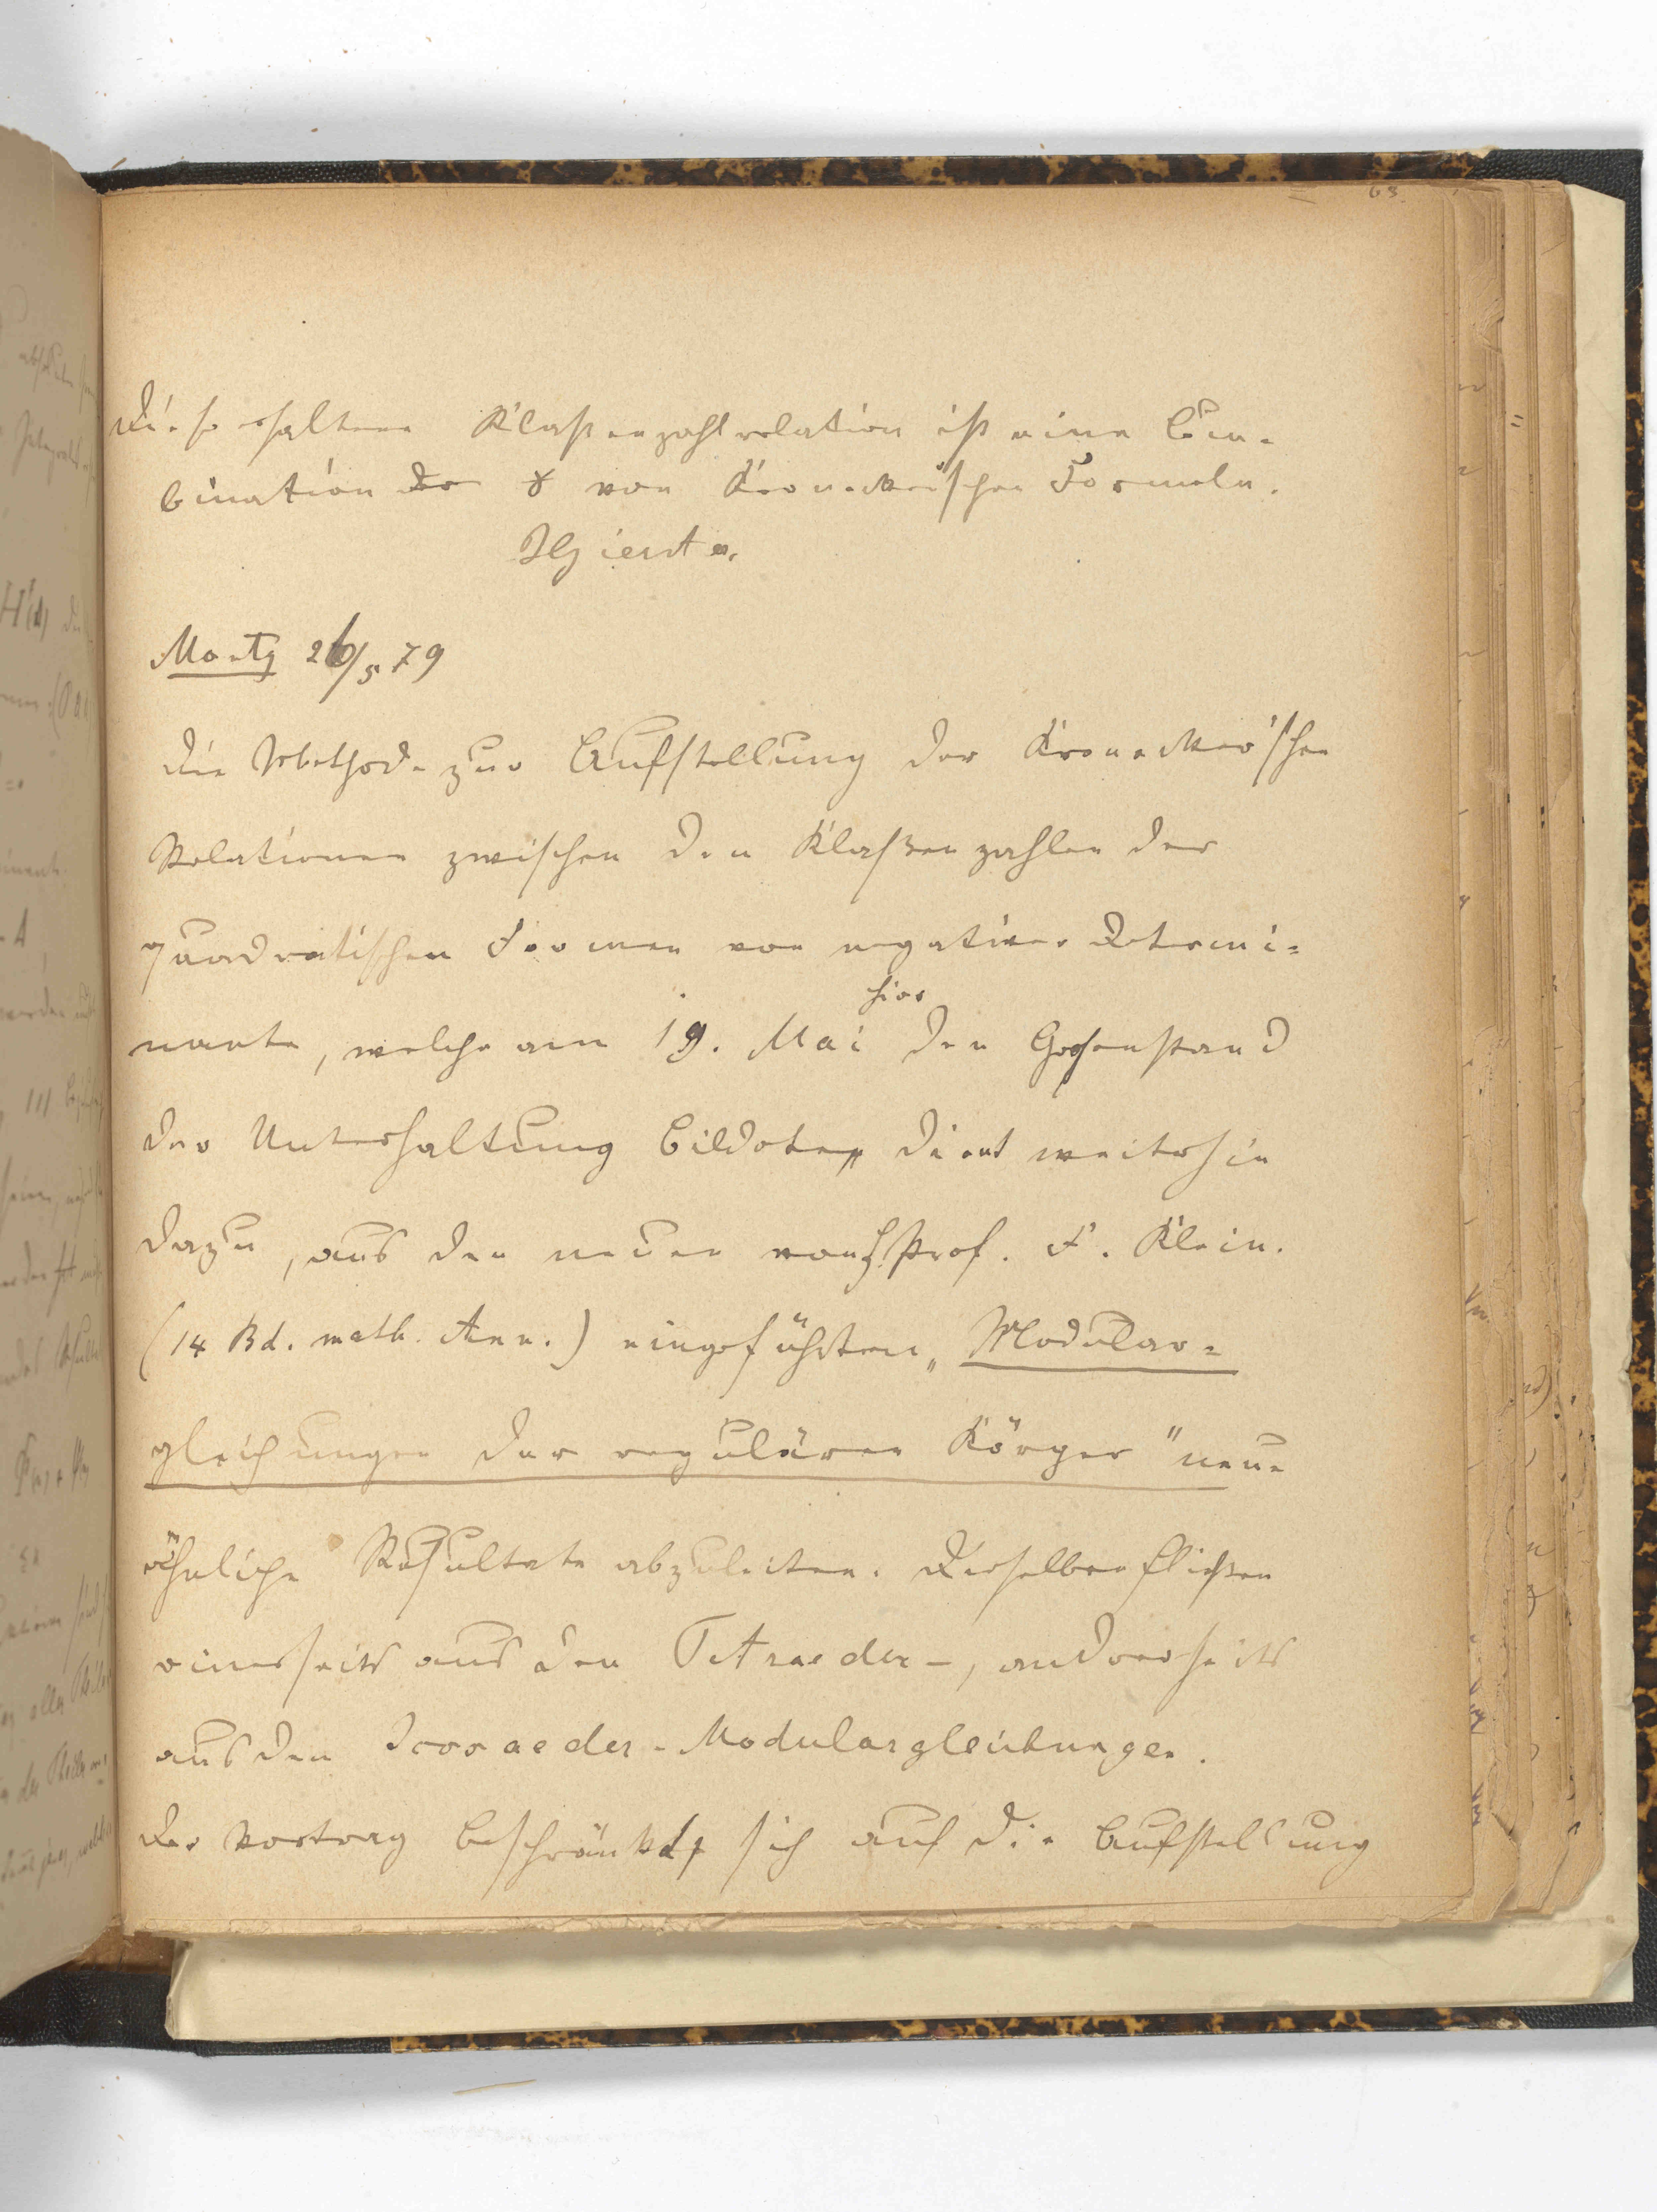 63.
Die so erhaltene Klaßenzahlrelation ist eine Com-
bination der 8 von Kronecker'schen Formeln.
JGierster.
Montg 26/5 79
Die Methode zur Aufstellung der Kronecker'schen
Relationen zwischen den Klaßenzahlen der
quadratischen Formen von negativer Determi-
nante, welche am 19. Mai hier den Gegenstand
der Unterhaltung bildete, dient weiterhin
dazu, aus den neuen von H. Prof. F. Klein.
(14 Bd. math. Ann.) eingeführten „Modular-
gleichungen der regulären Körper" neue
ähnliche Resultate abzuleiten. Dieselben fließen
einerseits aus den Tetraeder-, anderseits
aus den Icosaeder-Modulargleichungen.
Der Vortrag beschränkte sich auf die Aufstellung